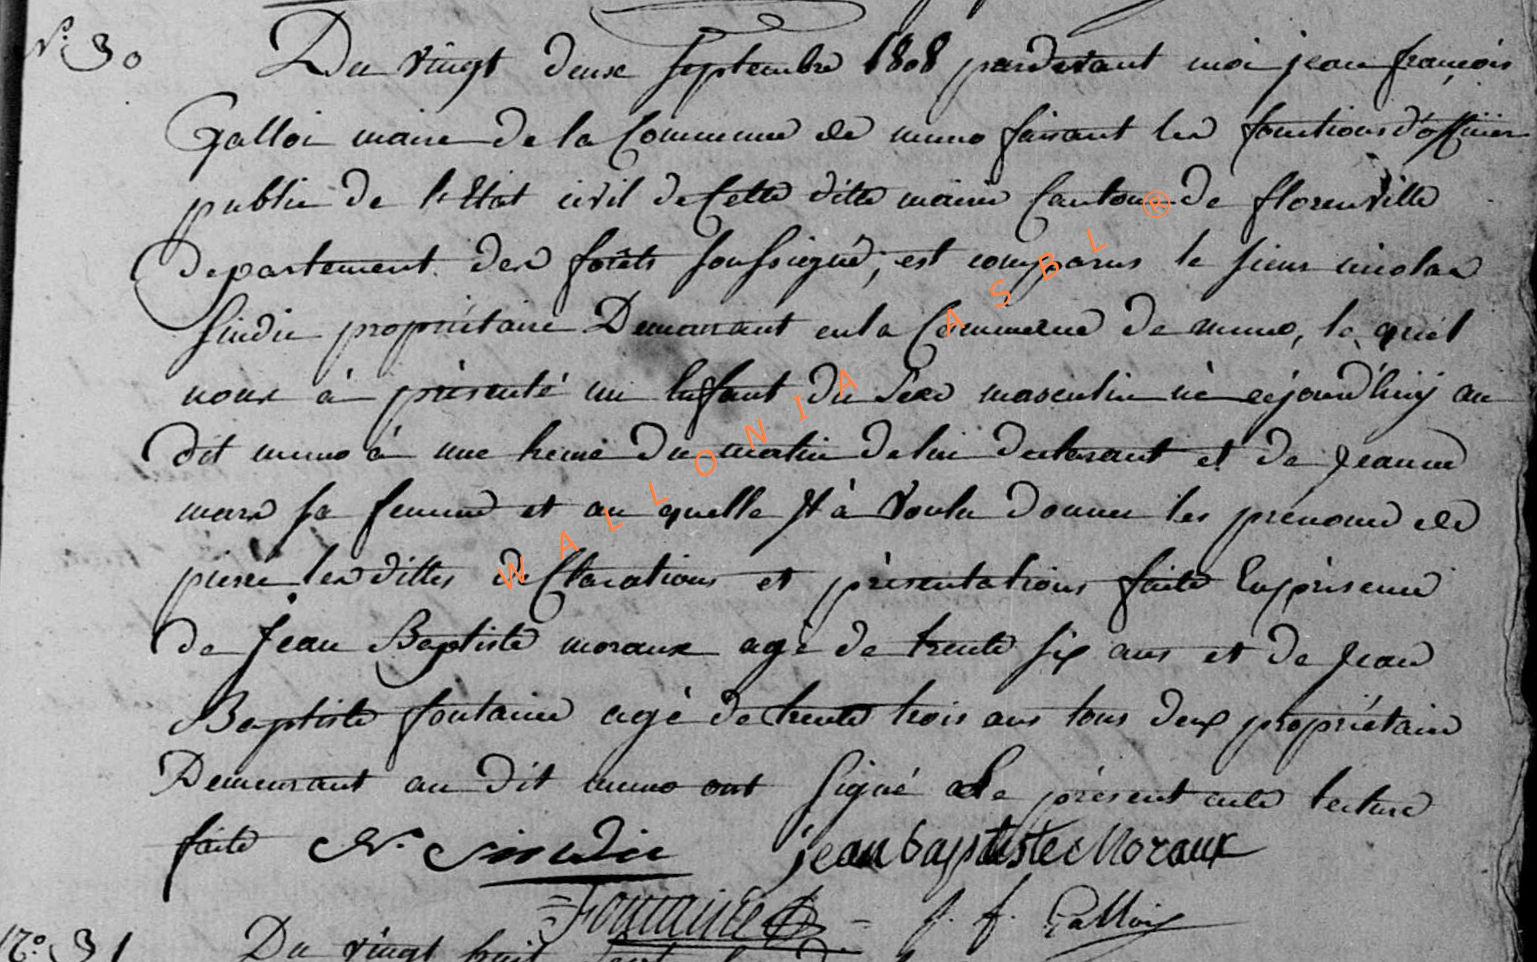 N° 30 Du vingt deux septembre 1808 pardevant moi jean françois
Galloi maire de la Commune de muno faisant les fonctions d'officier
public de l'Etat civil de Cette ditte mairie Canton de florenville
departement des forêts soussigné, est comparus le sieur nicolas
Sindic propriétaire Demeurant en la Commune de muno, le quél
nous à présenté un Enfant du Séxe masculin né cejourd'huy au
dit muno à une heure du matin de lui declarant et de Jeanne
marx sa femme et au quelle Il à voulu donner les prénoms de
pierre les dittes deClarations et présentations faite En présence
de Jean Baptiste moraux agé de trente six ans et de Jean
Baptiste fontaine agé de trente trois ans tous deux propriétaire
Demeurant au dit muno ont signé le présent acte lecture
faite N. Sindic jean baptiste Moraux
Fontaine j. f. Galloi
N° 31 Du vingt huit
WALLONIA ASBL ®